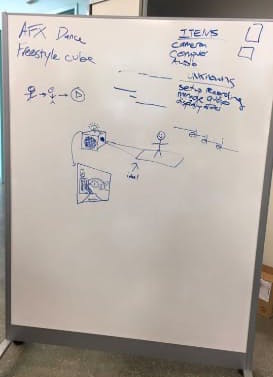 AFX Dance
Freestyle cube
ITEMS
Camera
Computer
Audio
unknowns
setup recording
manage audio
display